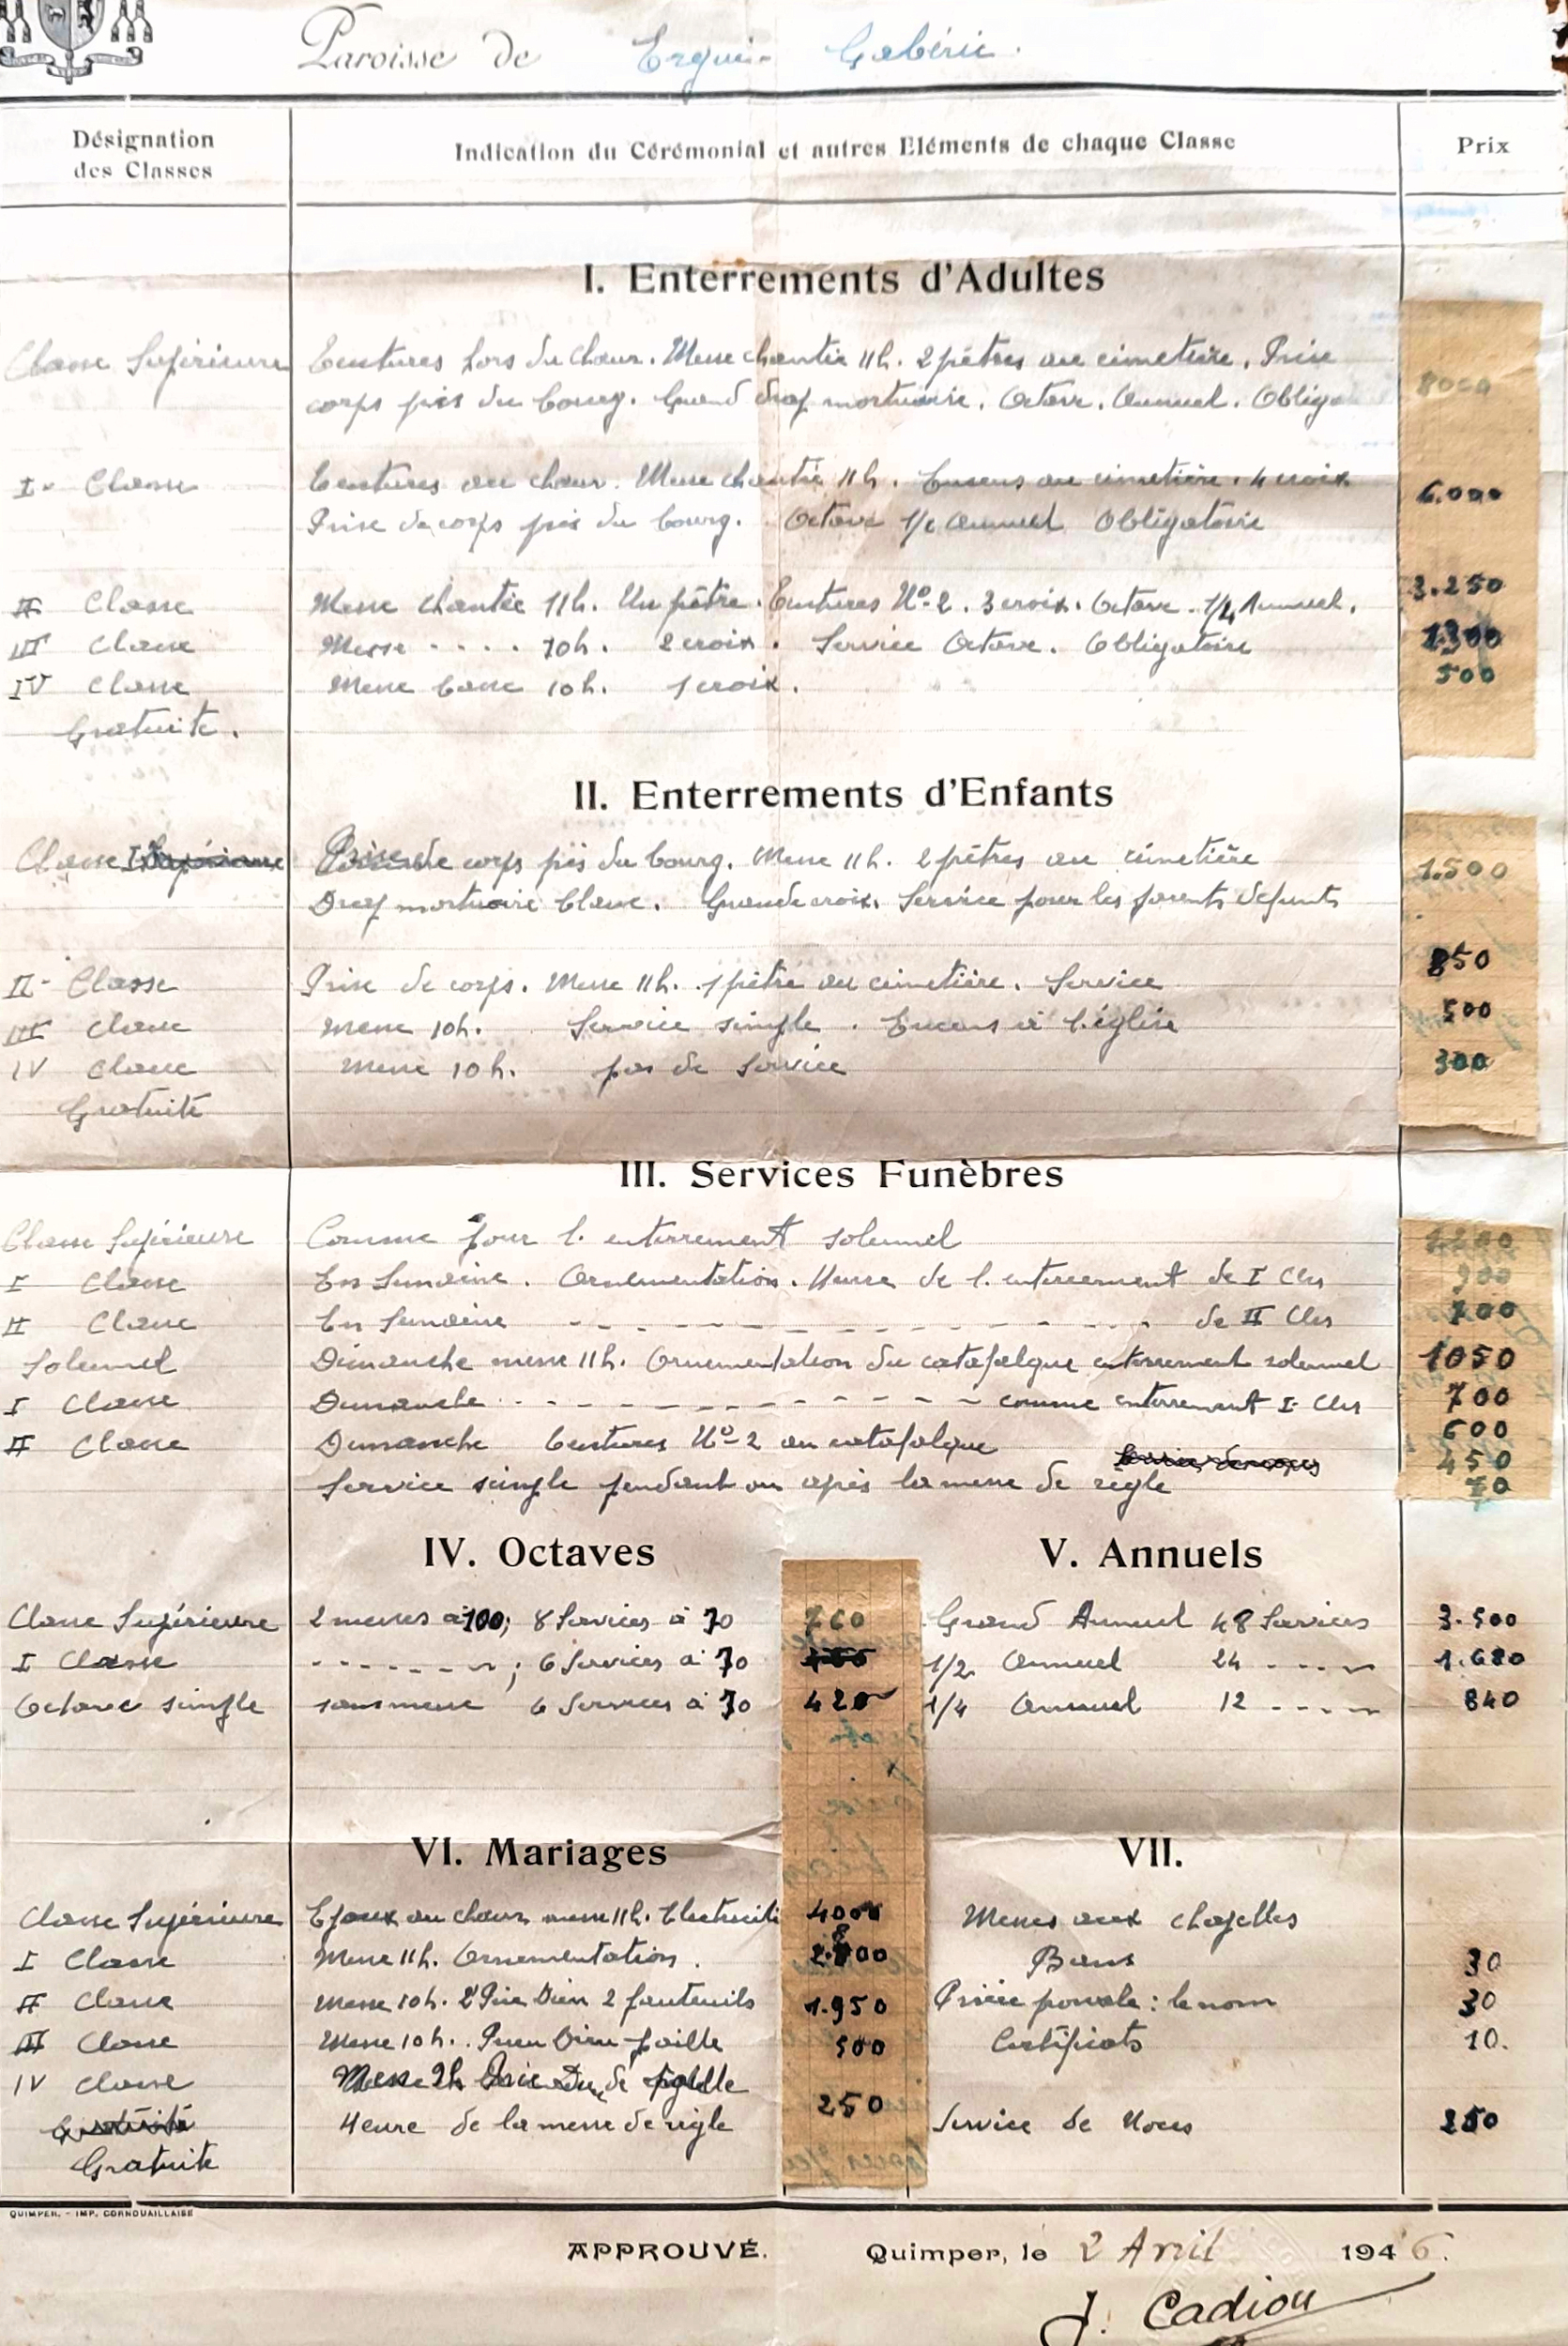 Paroisse de Ergué-Gabéric.
Désignation des Classes
Indication du Cérémonial et autres Eléments de chaque Classe
Prix
I. Enterrements d'Adultes
Classe Supérieure Tentures hors du Chœur. Messe chantée 11h. 2 prêtres au cimetière. Prise 8000
corps près du bourg. Grand drap mortuaire. Octave. Annuel. Obligo
I- Classe Tentures au chœur. Messe chantée 11h. Encens au cimetière. 4 croix 6.000
Prise de corps près du bourg. Octave 1/2 Annuel Obligatoire
II Classe Messe chantée 11h. Un prêtre. Tentures No-2. 3 croix. Octave. 1/4 Annuel. 3.250
III Classe Messe - - - - 10h. 2 croix. Service Octave. Obligatoire 1300
IV Classe Messe basse 10h. 1 croix. 500
Gratuite.
II. Enterrements d'Enfants
Classe I Prise de corps près du bourg. Messe 11h. 2 prêtres au cimetière 1.500
Drap mortuaire blanc. Grande croix. Service pour les parents défunts
II- Classe Prise de corps. Messe 11h. 1 prêtre au cimetière. Service 850
III Classe Messe 10h. Service simple. Encens à l'église 500
IV Classe Messe 10h. pas de service 300
Gratuité
III. Services Funèbres
Classe Supérieure Comme pour l'enterrement solennel
I Classe En Semaine. Ornementation. Heure de l'enterrement de I Clss 900
II Classe En Semaine - - - - - - - - - - - - de II Clss 700
Solennel Dimanche messe 11h. Ornementation du catafalque enterrement solennel 1050
I Classe Dimanche - - - - - - - - - - - comme enterrement I- Clss 700
II Classe Dimanche Tentures No-2 au catafalque 600
450
Service simple pendant ou après la messe de règle 70
IV. Octaves
Classe Supérieure 2 messes à 100; 8 Services à 70 760
I Classe - - - - - - - ; 6 Services à 70
Octave simple sans messe 6 Services à 70 420
V. Annuels
Grand Annuel 48 Services 3.500
1/2 Annuel 24 - - - - 1.680
1/4 Annuel 12 - - - - 840
VI. Mariages
Classe Supérieure Epoux au chœur messe 11h. Electricité 4000
I Classe Messe 11h. Ornementation. 2.800
II Classe Messe 10h. 2 Prie Dieu 2 fauteuils 1.950
III Classe Messe 10h. Prie Dieu paille 500
IV Classe Messe 9h Prie Dieu de paille
Heure de la messe de règle 250
Gratuite
VII.
Messes aux chapelles
Bans 30
Prière pronale: le nom 30
Certificats 10.
Service de Noces 250
QUIMPER. - IMP. CORNOUAILLAISE
APPROUVÉ. Quimper, le 2 Avril 1946.
J. Cadiou